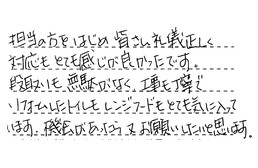 担当の方をはじめ、皆さん礼儀正しく
対応もとても感じが良かったです。
段取りも無駄がなく、工事も丁寧で
リフォームしたトイレもレンジフードもとても気に入って
います。機会があったら又お願いしたいと思います。